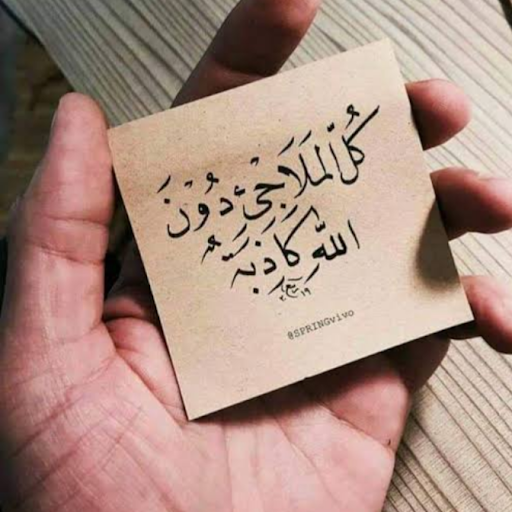 كُلّ المَلَاجِئ دُوْنَ
اللَّهِ كَاذِبَةٌ
@SPRINGvivo